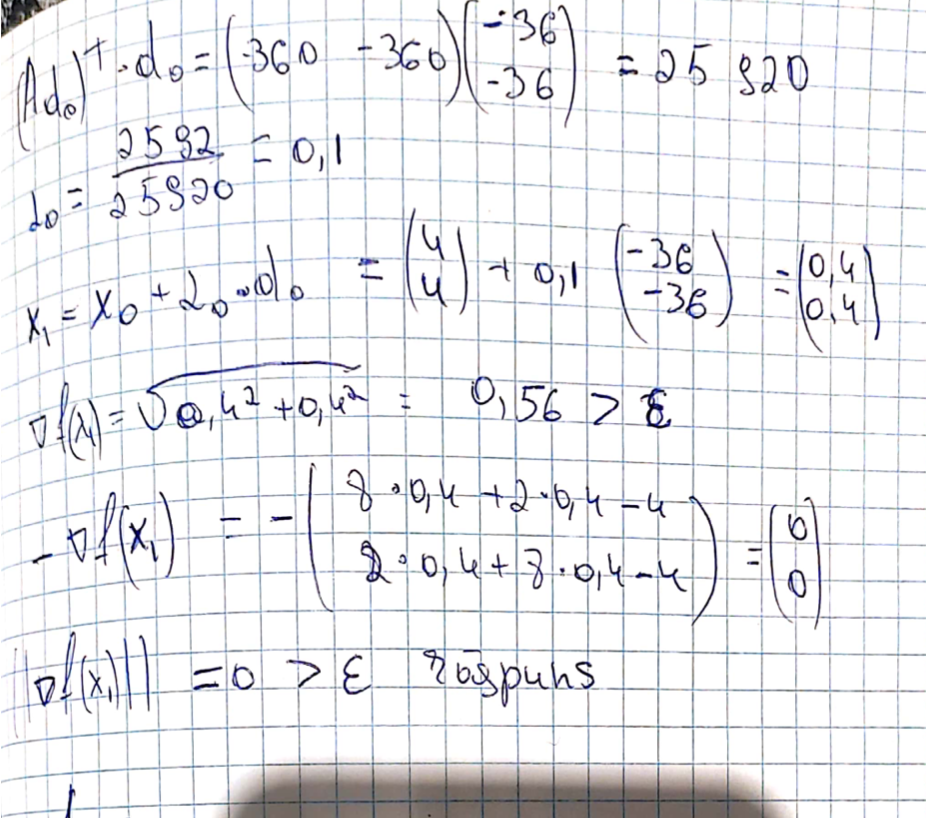 (Ad₀)ᵀ · d₀ = (-360 -360) (-36 -36) = 25 920
α₀ = 2592 / 25920 = 0,1
x₁ = x₀ + α₀ · d₀ = (4 4) + 0,1 (-36 -36) = (0,4 0,4)
∇f(x₁) = √0,4² + 0,4² = 0,56 > ε
-∇f(x₁) = - (8·0,4 + 2·0,4 - 4 2·0,4 + 8·0,4 - 4) = (0 0)
||∇f(x₁)|| = 0 > ε